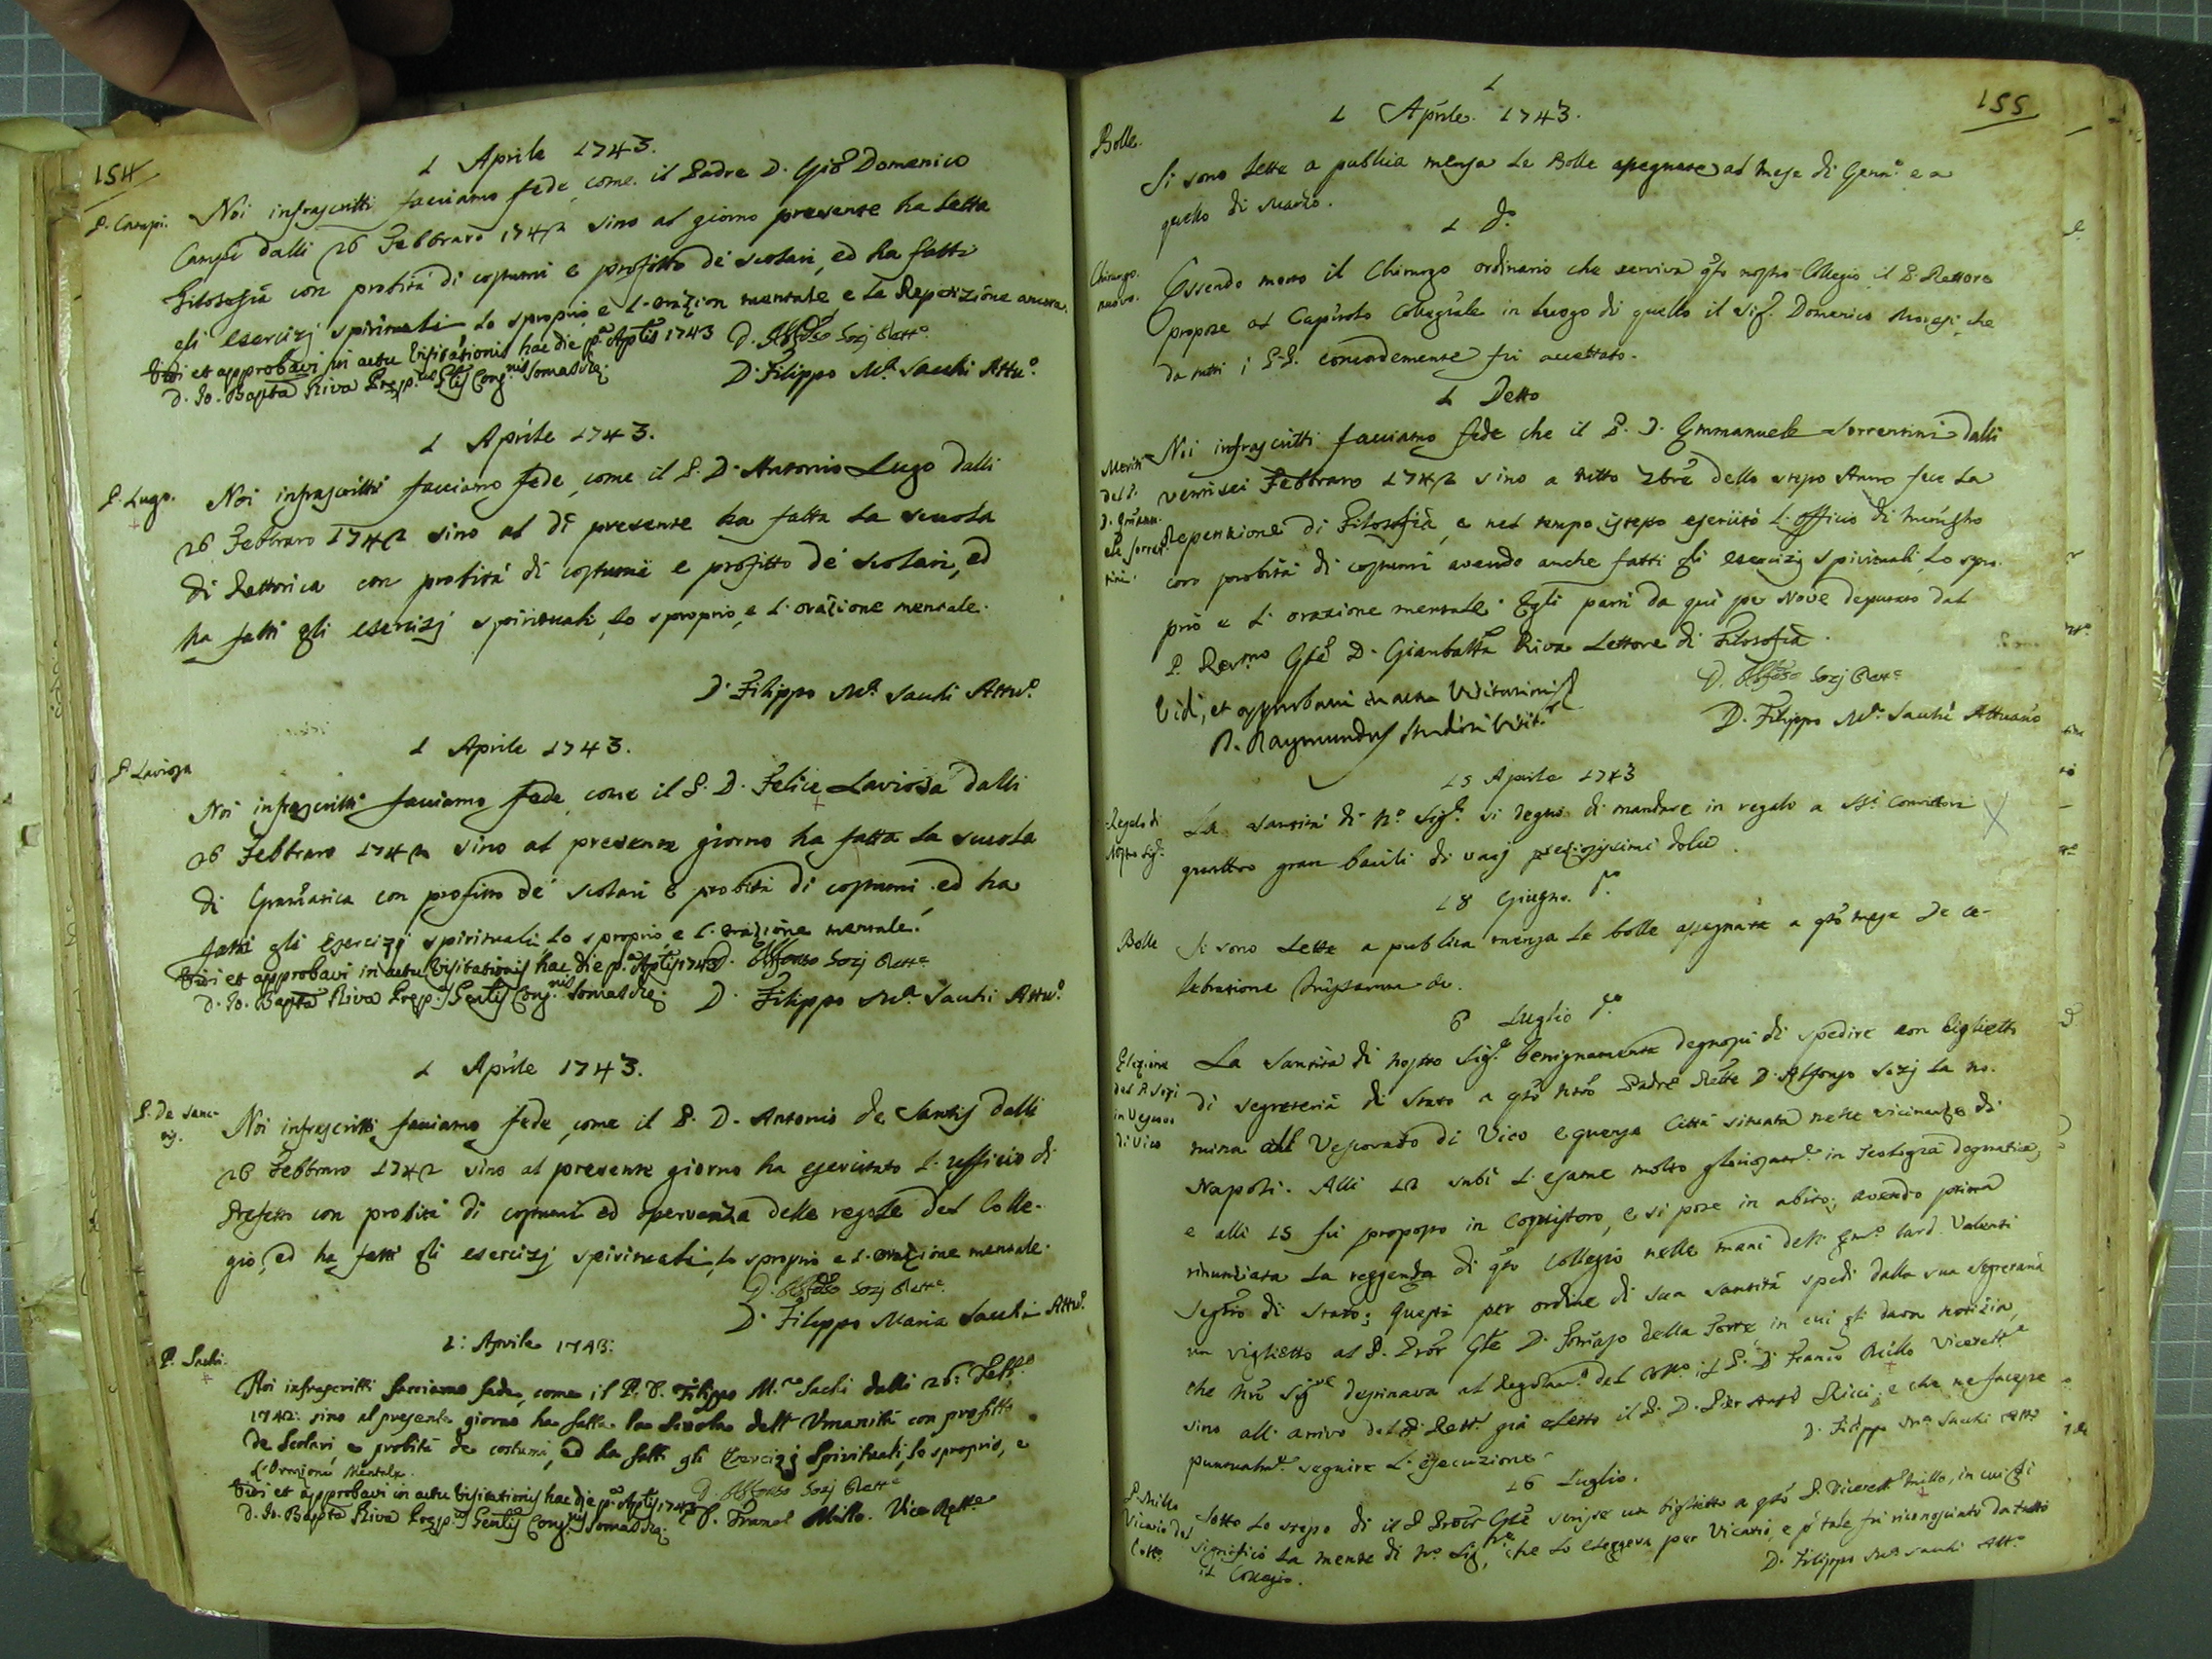 154
1 Aprile 1743.
P. Campi.
Noi infrascritti facciamo fede, come il Padre D. Gio Domenico
Campi dalli 26 Febbraro 1742 sino al giorno presente ha letta
Filosofia con probità di costumi e profitto de' scolari, ed ha fatti
gli esercizj spirituali, lo sproprio e l'orazion mentale e la Repetizione ancora.
Vidi et approbavi in actu Visitationis hac die p.a Aplis 1743 D. Alfonso Sozj Rett.e
D. Jo. Bapta Riva Prep.us Glis Cong.nis Somaschę. D. Filippo M.a Sachi Attu.o
1 Aprile 1743.
P. Lugo.
Noi infrascritti facciamo fede, come il P. D. Antonio Lugo dalli
26 Febbraro 1742 sino al dì presente ha fatta la scuola
di Rettorica con probità di costumi e profitto de' scolari, ed
ha fatti gli esercizj spirituali, lo sproprio, e l'orazione mentale.
D. Filippo M.a Sachi Attu.o
1 Aprile 1743.
P. Laviosa
Noi infrascritti facciamo fede, come il P. D. Felice Laviosa dalli
26 Febbraro 1742 sino al presente giorno ha fatta la scuola
di Gramatica con profitto de' scolari e probità di costumi, ed ha
fatti gli Esercizj spirituali, lo sproprio, e l'orazione mentale.
Vidi et approbavi in actu Visitationis hac die p.a Aplis 1743 D. Alfonso Sozj Rett.e
D. Jo. Bapta Riva Prep.us Genlis Cong.nis Somaschę. D. Filippo M.a Sachi Attu.o
1 Aprile 1743.
P. De Sanc-
tis.
Noi infrascritti facciamo fede, come il P. D. Antonio de Santis dalli
26 Febbraro 1742 sino al presente giorno ha esercitato l'ufficio di
Prefetto con probità di costumi ed osservanza delle regole del Colle-
gio, ed ha fatti gli esercizj spirituali, lo sproprio e l'orazione mentale.
D. Alfonso Sozj Rett.e
D. Filippo Maria Sachi Attu.o
1: Aprile 1743:
P. Sachi.
Noi infrascritti facciamo fede, come il P. D. Filippo M.a Sachi dalli 26: Febb.o
1742: sino al presente giorno ha fatta la Scuola dell'Umanità con profitto
de Scolari e probità de costumi, ed ha fatti gli Esercizj Spirituali, lo sproprio, e
l'Orazione Mentale.
Vidi et approbavi in actu Visitationis hac die p.a Aplis 1743 D. Alfonso Sozj Rett.e
D. Jo. Bapta Riva Prep.us Genlis Cong.nis Somaschę. D. Franc.o Millo. Vice Rett.e
155
1
1 Aprile 1743.
Bolle.
Si sono lette a publica mensa le Bolle assegnate al mese di Genn.o e a
quello di Marzo.
1 D.o
Chirurgo
nuovo.
Essendo morto il Chirurgo ordinario che serviva qsto nostro Collegio il P. Rettore
propose al Capitolo Collegiale in luogo di quello il Sig.r Domenico, che
da tutti i P.P. concordemente fu accettato.
1 Detto
Meriti
del P.
D. Emanu-
ele Sorren-
tini.
Noi infrascritti facciamo fede che il P. D. Emmanuele Sorrentini dalli
ventisei Febbraro 1742 sino a tutto 7bre dello stesso Anno fece la
Repetizione di Filosofia, e nel tempo istesso esercitò l'officio di Ministro
con probità di costumi avendo anche fatti gli esercizj spirituali, lo spro-
prio e l'orazione mentale. Egli partì da quì per Nove deputato dal
P. Rev.mo Gle D. Gianbatta Riva Lettore di Filosofia.
D. Alfonso Sozj Rett.e
Vidi, et approbavi in actu Visitationis
D. Filippo M.a Sachi Attuario
D. Raymundus Studiosi Visit.r
15 Aprile 1743
Regalo di
Nostro Sig.e
La Santità di N.o Sig.e si degnò di mandare in regalo a SS.i Convittori
quattro gran bacili di varj preziosissimi dolci.
18 Giugno. D.o
Bolle
Si sono lette a publica mensa le bolle assegnate a qsto mese De ce-
lebratione Missarum &c.
6 Luglio D.o
Elezione
del P. Sozi
in Vescovo
di Vico
La Santità di nostro Sig.e benignamente degnossi di spedire con biglietto
di segreteria di Stato a qsto nro Padre Rette D. Alfonso Sozj la no-
mina al Vescovado di Vico equense Città situata nelle vicinanze di
Napoli. Alli 12 subì l'esame molto gloriosam.e in Teologia dogmatica,
e alli 15 fu proposto in Concistoro, e si pose in abito; avendo prima
rinunziata la reggenza di qsto Collegio nelle mani dell'Em.o Card. Valenti
Segrio di Stato; questi per ordine di Sua Santità spedì dalla sua segreteria
un viglietto al P. Pror Gle D. Tomaso della Torre, in cui gli dava notizia,
che Nro Sig.re destinava al Regolam.o del Coll.o il P. D. Franco Millo Vicerett.e
sino all'arrivo del P. Rett.e già eletto il P. D. Pier Anto Ricci; e che ne facesse
puntualm.e seguire l'esecuzione.
D. Filippo M.a Sachi Atto
16 Luglio.
P. Millo
Vicario del
Coll.o
Sotto lo stesso di il P. Pror Gle scrisse un biglietto a qsto P. Vicerett.e Millo, in cui gli
significò la mente di N.o Sig.re, che lo eleggeva per Vicario, e p tale fu riconosciuto da tutto
il Collegio.
D. Filippo M.a Sachi Att.o